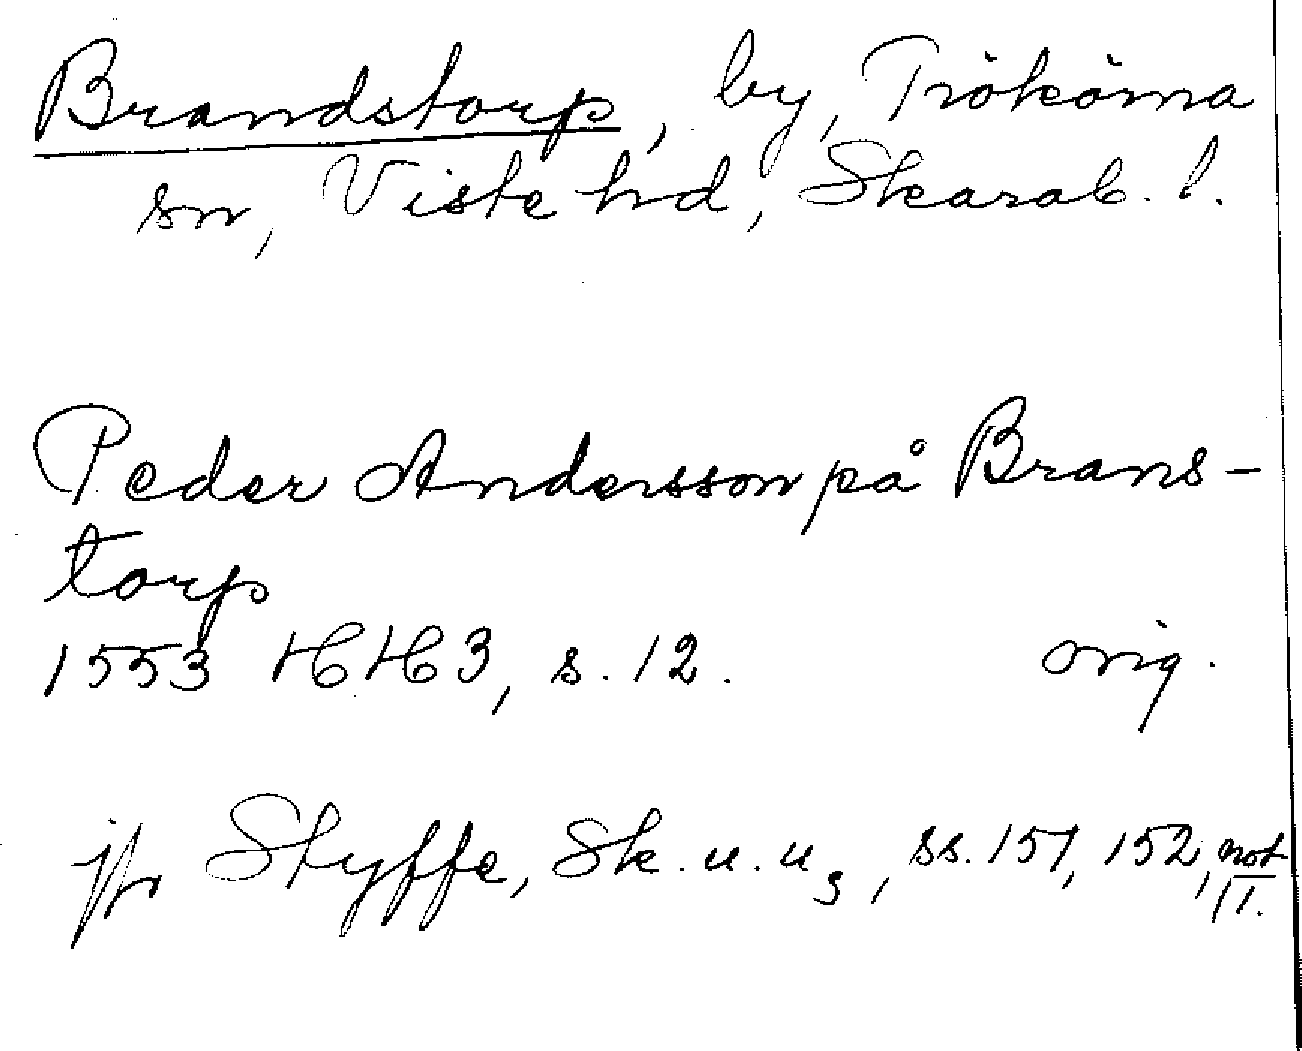 Brandstorp, by, Trökörna
sn, Viste hd, Skarab. l.
Peder Andersson på Brans-
torp
1553 HH 3, s. 12. orig.
jfr Styffe, Sk. u. u 3, ss. 151, 152, not
1.